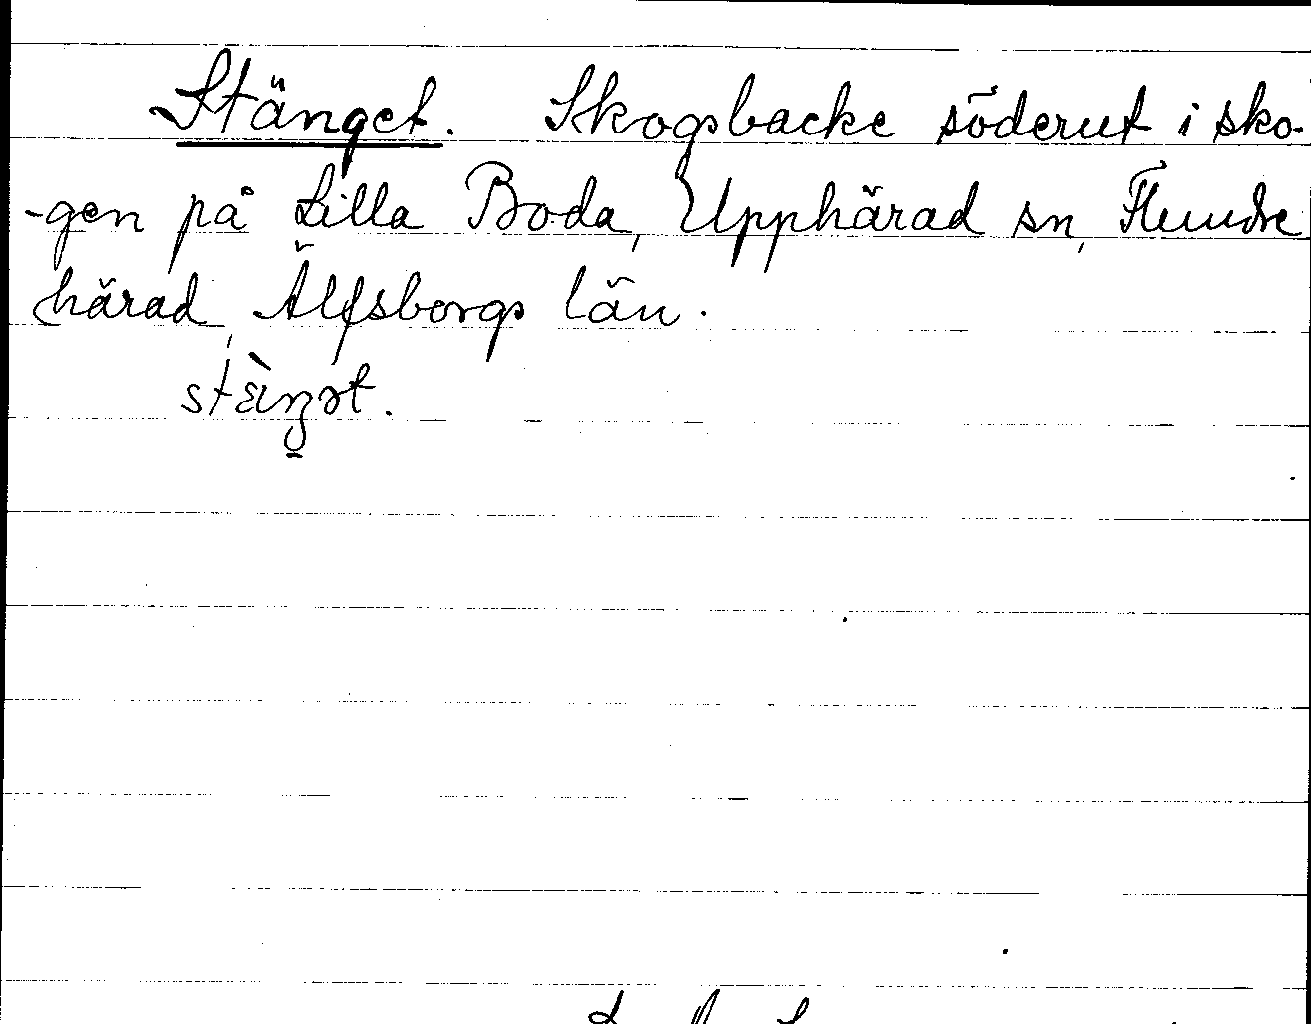 Stänget. Skogsbacke söderut i sko-
-gen på Lilla Boda, Upphärad sn, Flundre
härad, Älfsborgs län.